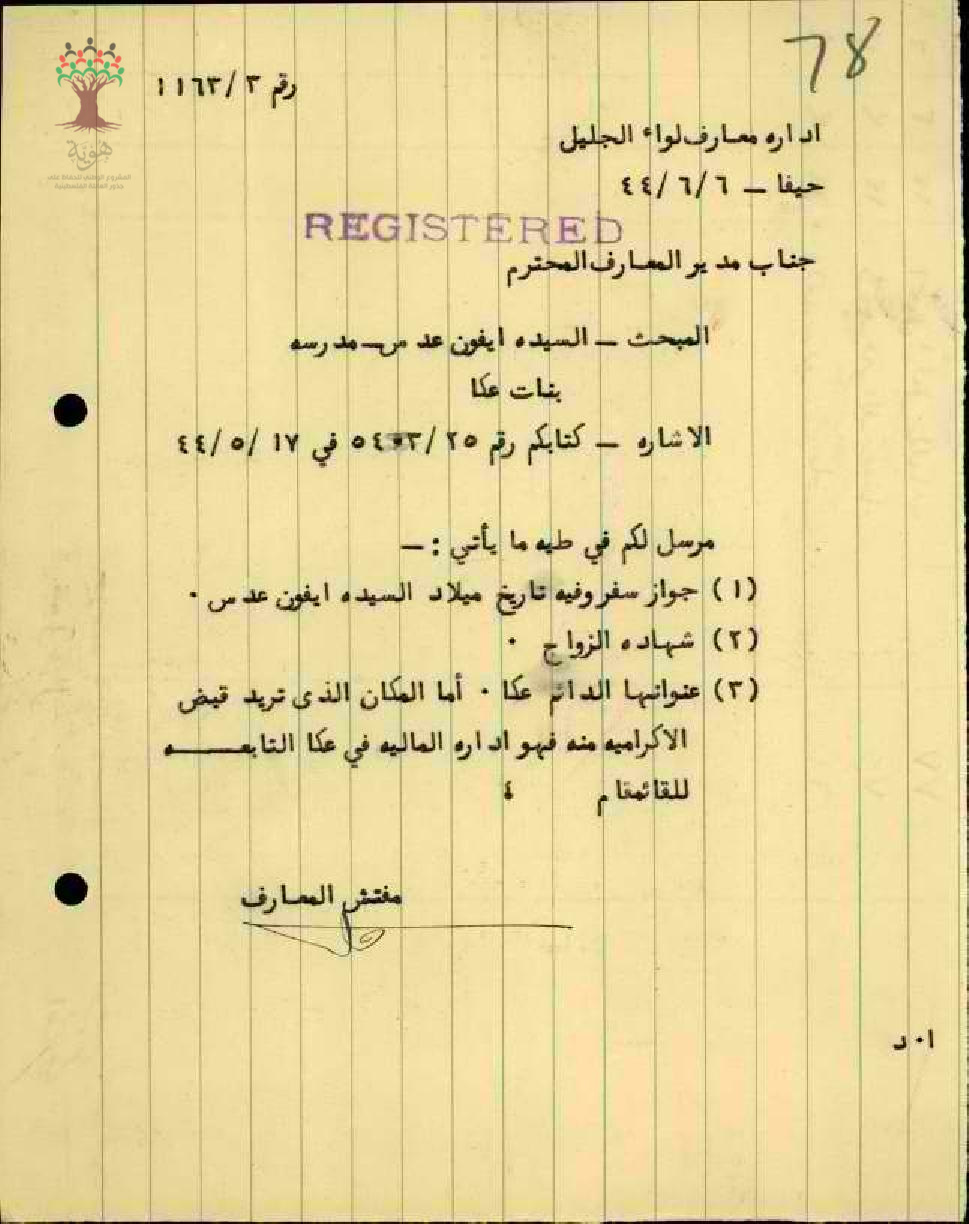 78
رقم ٣/ ١١٦٣
اداره معارف لواء الجليل
حيفا – ٦/ ٦/ ٤٤
REGISTERED
جناب مدير المعارف المحترم
المبحث – السيده ايفون عدس – مدرسه
بنات عكا
الاشاره – كتابكم رقم ٢٥/ ٥٤٠٣ في ١٧/ ٥/ ٤٤
مرسل لكم في طيه ما يأتي : –
(١) جواز سفر وفيه تاريخ ميلاد السيده ايفون عدس ٠
(٢) شهاده الزواج ٠
(٣) عنوانها الدائم عكا ٠ أما المكان الذى تريد قبض
الاكراميه منه فهو اداره الماليه في عكا التابعــــه
للقائمقام ٤
مفتش المعارف
ا٠ د
هوية
المشروع الوطني للحفاظ على
جذور العائلة الفلسطينية